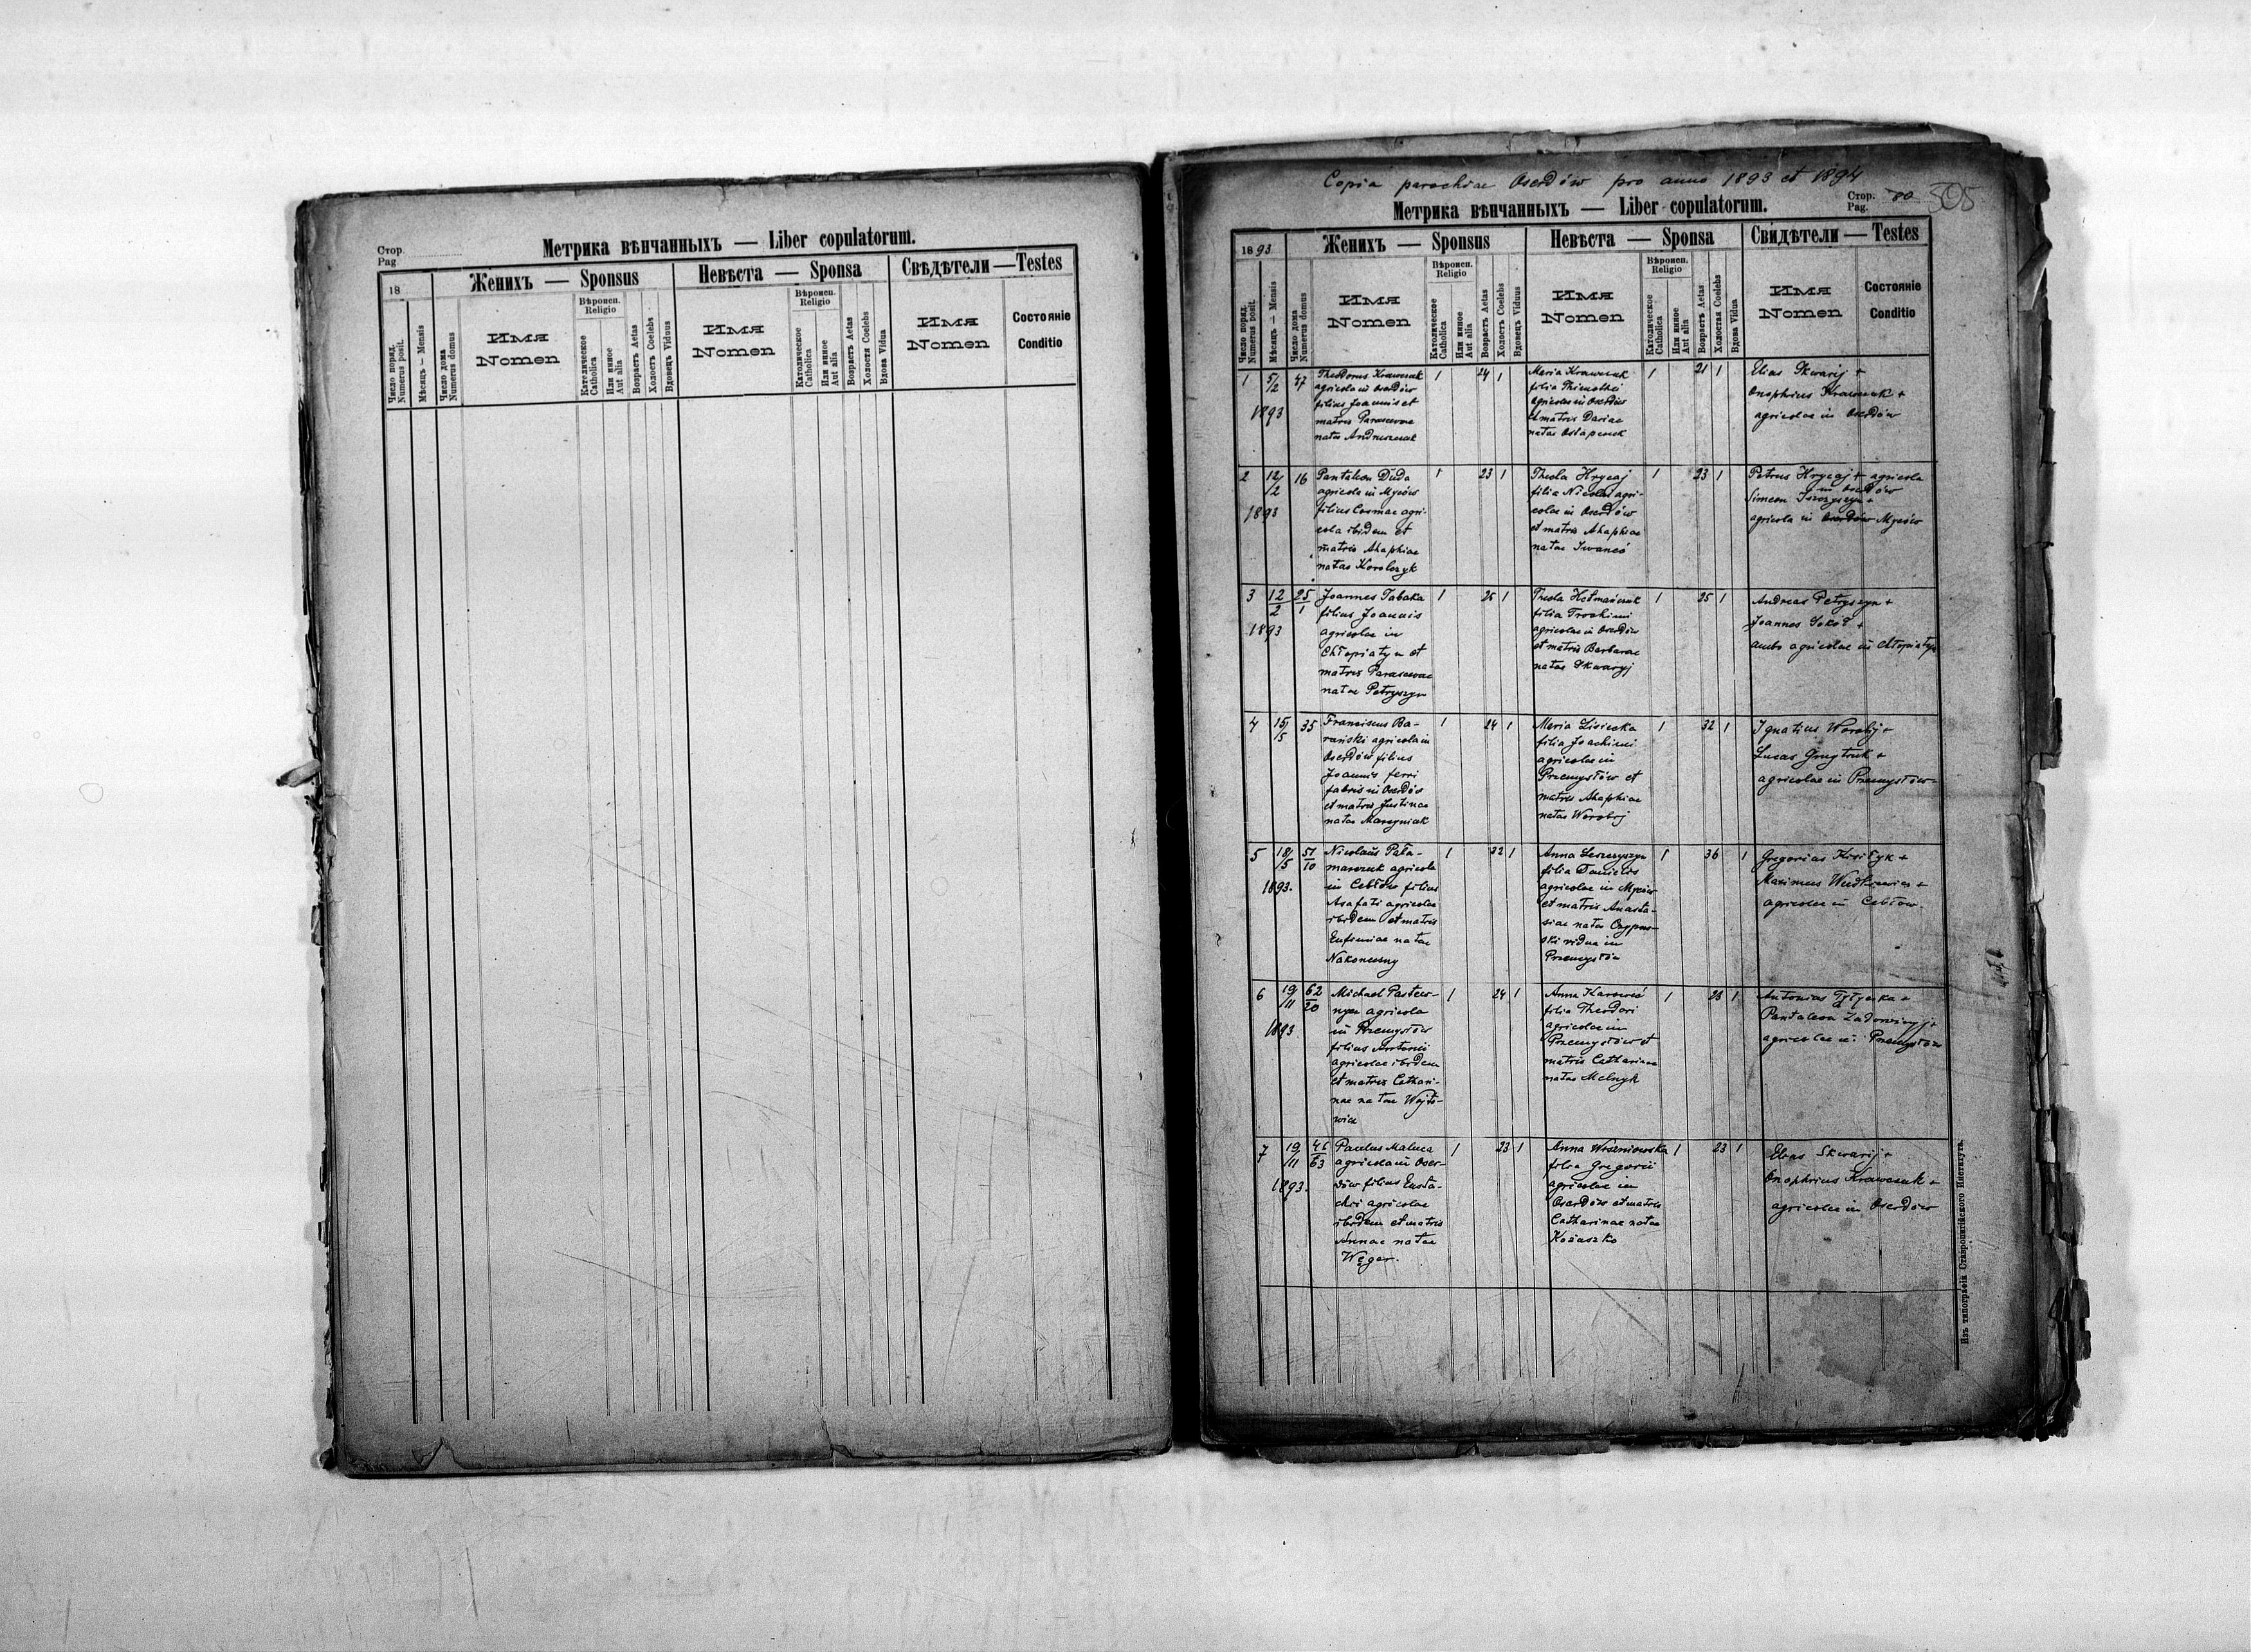 Стор.
Pag
Метрика вѣнчанныхъ — Liber copulatorum.
18
Женихъ — Sponsus
Невѣста — Sponsa
Свѣдѣтели — Testes
Число поряд.
Numerus posit.
Мѣсяцъ — Mensis
Число дома
Numerus domus
Имя
Nomen
Вѣроисп.
Religio
Католическое
Catholica
Или иное
Aut alia
Возрастъ Aetas
Холостъ Coelebs
Вдовецъ Viduus
Имя
Nomen
Вѣроисп.
Religio
Католическое
Catholica
Или иное
Aut alia
Возрастъ Aetas
Холостя Coelebs
Вдова Vidua
Имя
Nomen
Состояніе
Conditio
Copia parochiae Oserdów pro anno 1893 et 1894
Метрика вѣнчанныхъ — Liber copulatorum.
Стор.
Pag.
80
305
1893
Женихъ — Sponsus
Невѣста — Sponsa
Свидѣтели — Testes
Число поряд.
Numerus posit.
Мѣсяцъ — Mensis
Число дома
Numerus domus
Имя
Nomen
Вѣроисп.
Religio
Католическое
Catholica
Или иное
Aut alia
Возрастъ Aetas
Холостъ Coelebs
Вдовецъ Viduus
Имя
Nomen
Вѣроисп.
Religio
Католическое
Catholica
Или иное
Aut alia
Возрастъ Aetas
Холостая Coelebs
Вдова Vidua
Имя
Nomen
Состояніе
Conditio
1 5/2 1893 47
Theodorus Krawczuk
agricola in Oserdów
filius Joannis et
matris Parascevae
natae Andruszczuk
1 24 1
Maria Krawczuk
filia Thimothei
agricolae in Oserdów
et matris Dariae
natae Ostapczuk
1 21 1
Elias Skwarij +
Onophrius Krawczuk +
agricolae in Oserdów
2 12/2 1893 16
Pantaleon Duda
agricola in Myców
filius Cosmae agri-
cola ibidem et
matris Ahaphiae
natae Korolczyk
1 23 1
Thecla Hrycaj
filia Nicolai agri-
colae in Oserdów
et matris Ahaphiae
natae Iwanció
1 23 1
Petrus Hrycaj + agricola
in Oserdów
Simeon +
agricola in Oserdów Myców
3 12/2 1893 25/1
Joannes Tabaka
filius Joannis
agricolae in
Chłopiatyn et
matris Parascevae
natae Petryszyn
1 25 1
Thecla Hetmańczuk
filia Trochimi
agricolae in Oserdów
et matris Barbarae
natae Skwaryj
1 25 1
Andreas Petryszyn +
Joannes Sokół +
ambo agricolae in Chłopiatyn
4 15/5 35
Franciscus Ba-
rański agricola in
Oserdów filius
Joannis ferri
fabris in Oserdów
et matris Justinae
natae Marcyniak
1 24 1
Maria Lisiecka
filia Joachimi
agricolae in
Przemysłów et
matris Ahaphiae
natae Worobij
1 32 1
Ignatius Worobij +
Lucas +
agricolae in Przemysłów
5 18/5 1893. 51/10
Nicolaus Pała-
marczuk agricola
in Cebłów filius
Asafati agricolae
ibidem et matris
Eufemiae natae
Nakoneczny
1 22 1
Anna Leszczyszyn
filia Danielis
agricolae in Myców
et matris Anasta-
siae natae
ski vidua in
Przemysłów
1 36 1
Gregorius Kisiłyk +
Maximus +
agricolae in Cebłow
6 19/11 1893 62/20
Michael Pastew-
nyen agricola
in Przemysłów
filius Antonii
agricolae ibidem
et matris Cathari-
nae natae Wojto-
wicz
1 24 1
Anna
filia Theodori
agricolae in
Przemysłów et
matris Catharinae
natae Melnyk
1 23 1
Antonius +
Pantaleon +
agricolae in Przemysłów
7 19/11 1893. 46/63
Paulus Maluca
agricola in Oser-
dów filius Eusta-
chii agricolae
ibidem et matris
Annae natae
Węger.
1 23 1
Anna Wiszniowska
filia Gregorii
agricolae in
Oserdów et matris
Catharinae natae
Koziaszko
1 23 1
Elias Skwarij +
Onophrius Krawczuk +
agricolae in Oserdów
Изъ типографіи Ставропигійского Института.